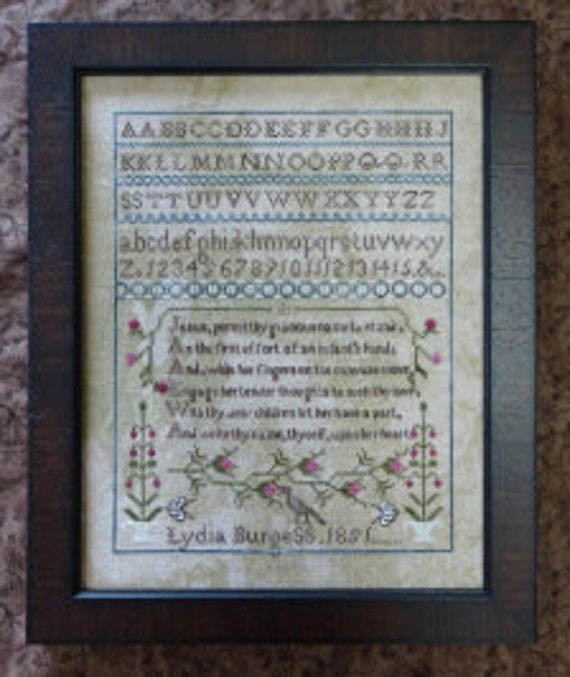 AABBCCDDEEFFGGHHIJ
KKLLMMNNOOPPQQRR
SSTTUUVVWWXXYYZZ
abcdefghijklmnopqrstuvwxy
Z.123456789101112131415.&.
Jesus, permit thy gracious name to stand,
As the first effort of an infant's hand,
And, while her fingers on the canvass move,
Engage her tender thoughts to seek thy love,
With thy dear children let her have a part,
And write thy name, thyself, upon her heart.
Lydia BurgeSS.1851.....